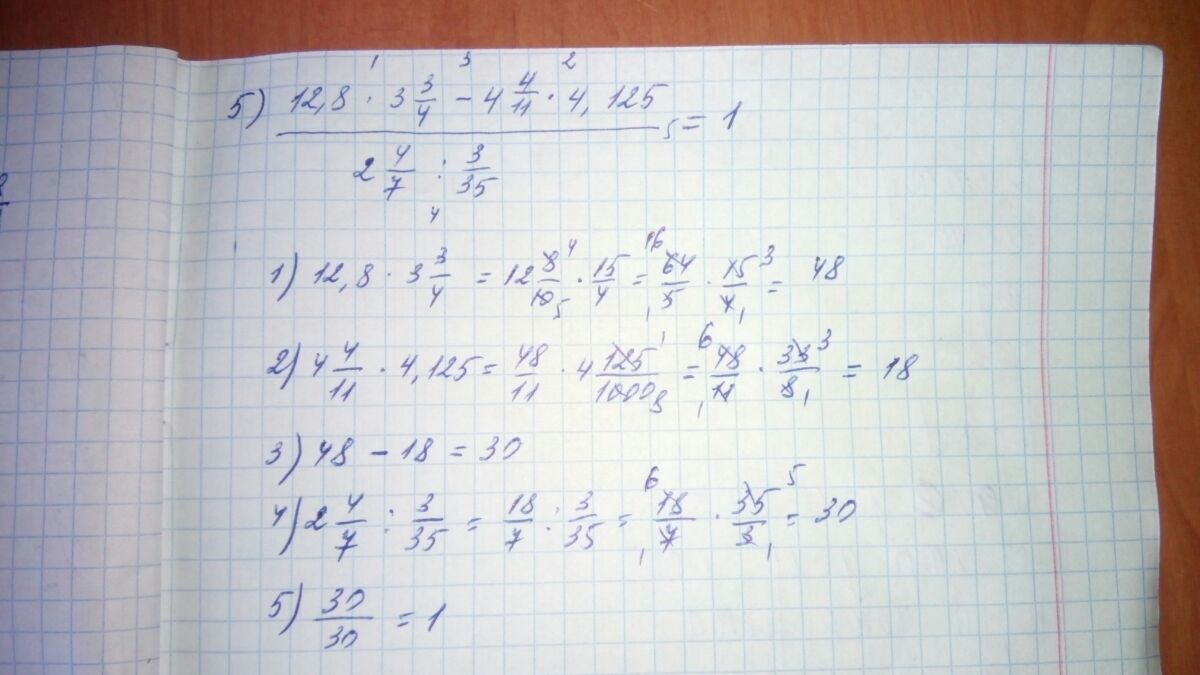 1 3 2
5) 12,8 · 3 3/4 - 4 4/11 · 4,125
5 = 1
2 4/7 : 3/35
4
1) 12,8 · 3 3/4 = 12 8/10 4 5 · 15/4 = 16 64/5 1 · 15/4 3 1 = 48
2) 4 4/11 · 4,125 = 48/11 · 4 125/1000 1 8 = 6 48/11 1 · 33/8 3 1 = 18
3) 48 - 18 = 30
4) 2 4/7 : 3/35 = 18/7 : 3/35 = 6 18/7 1 · 35/3 5 1 = 30
5) 30/30 = 1